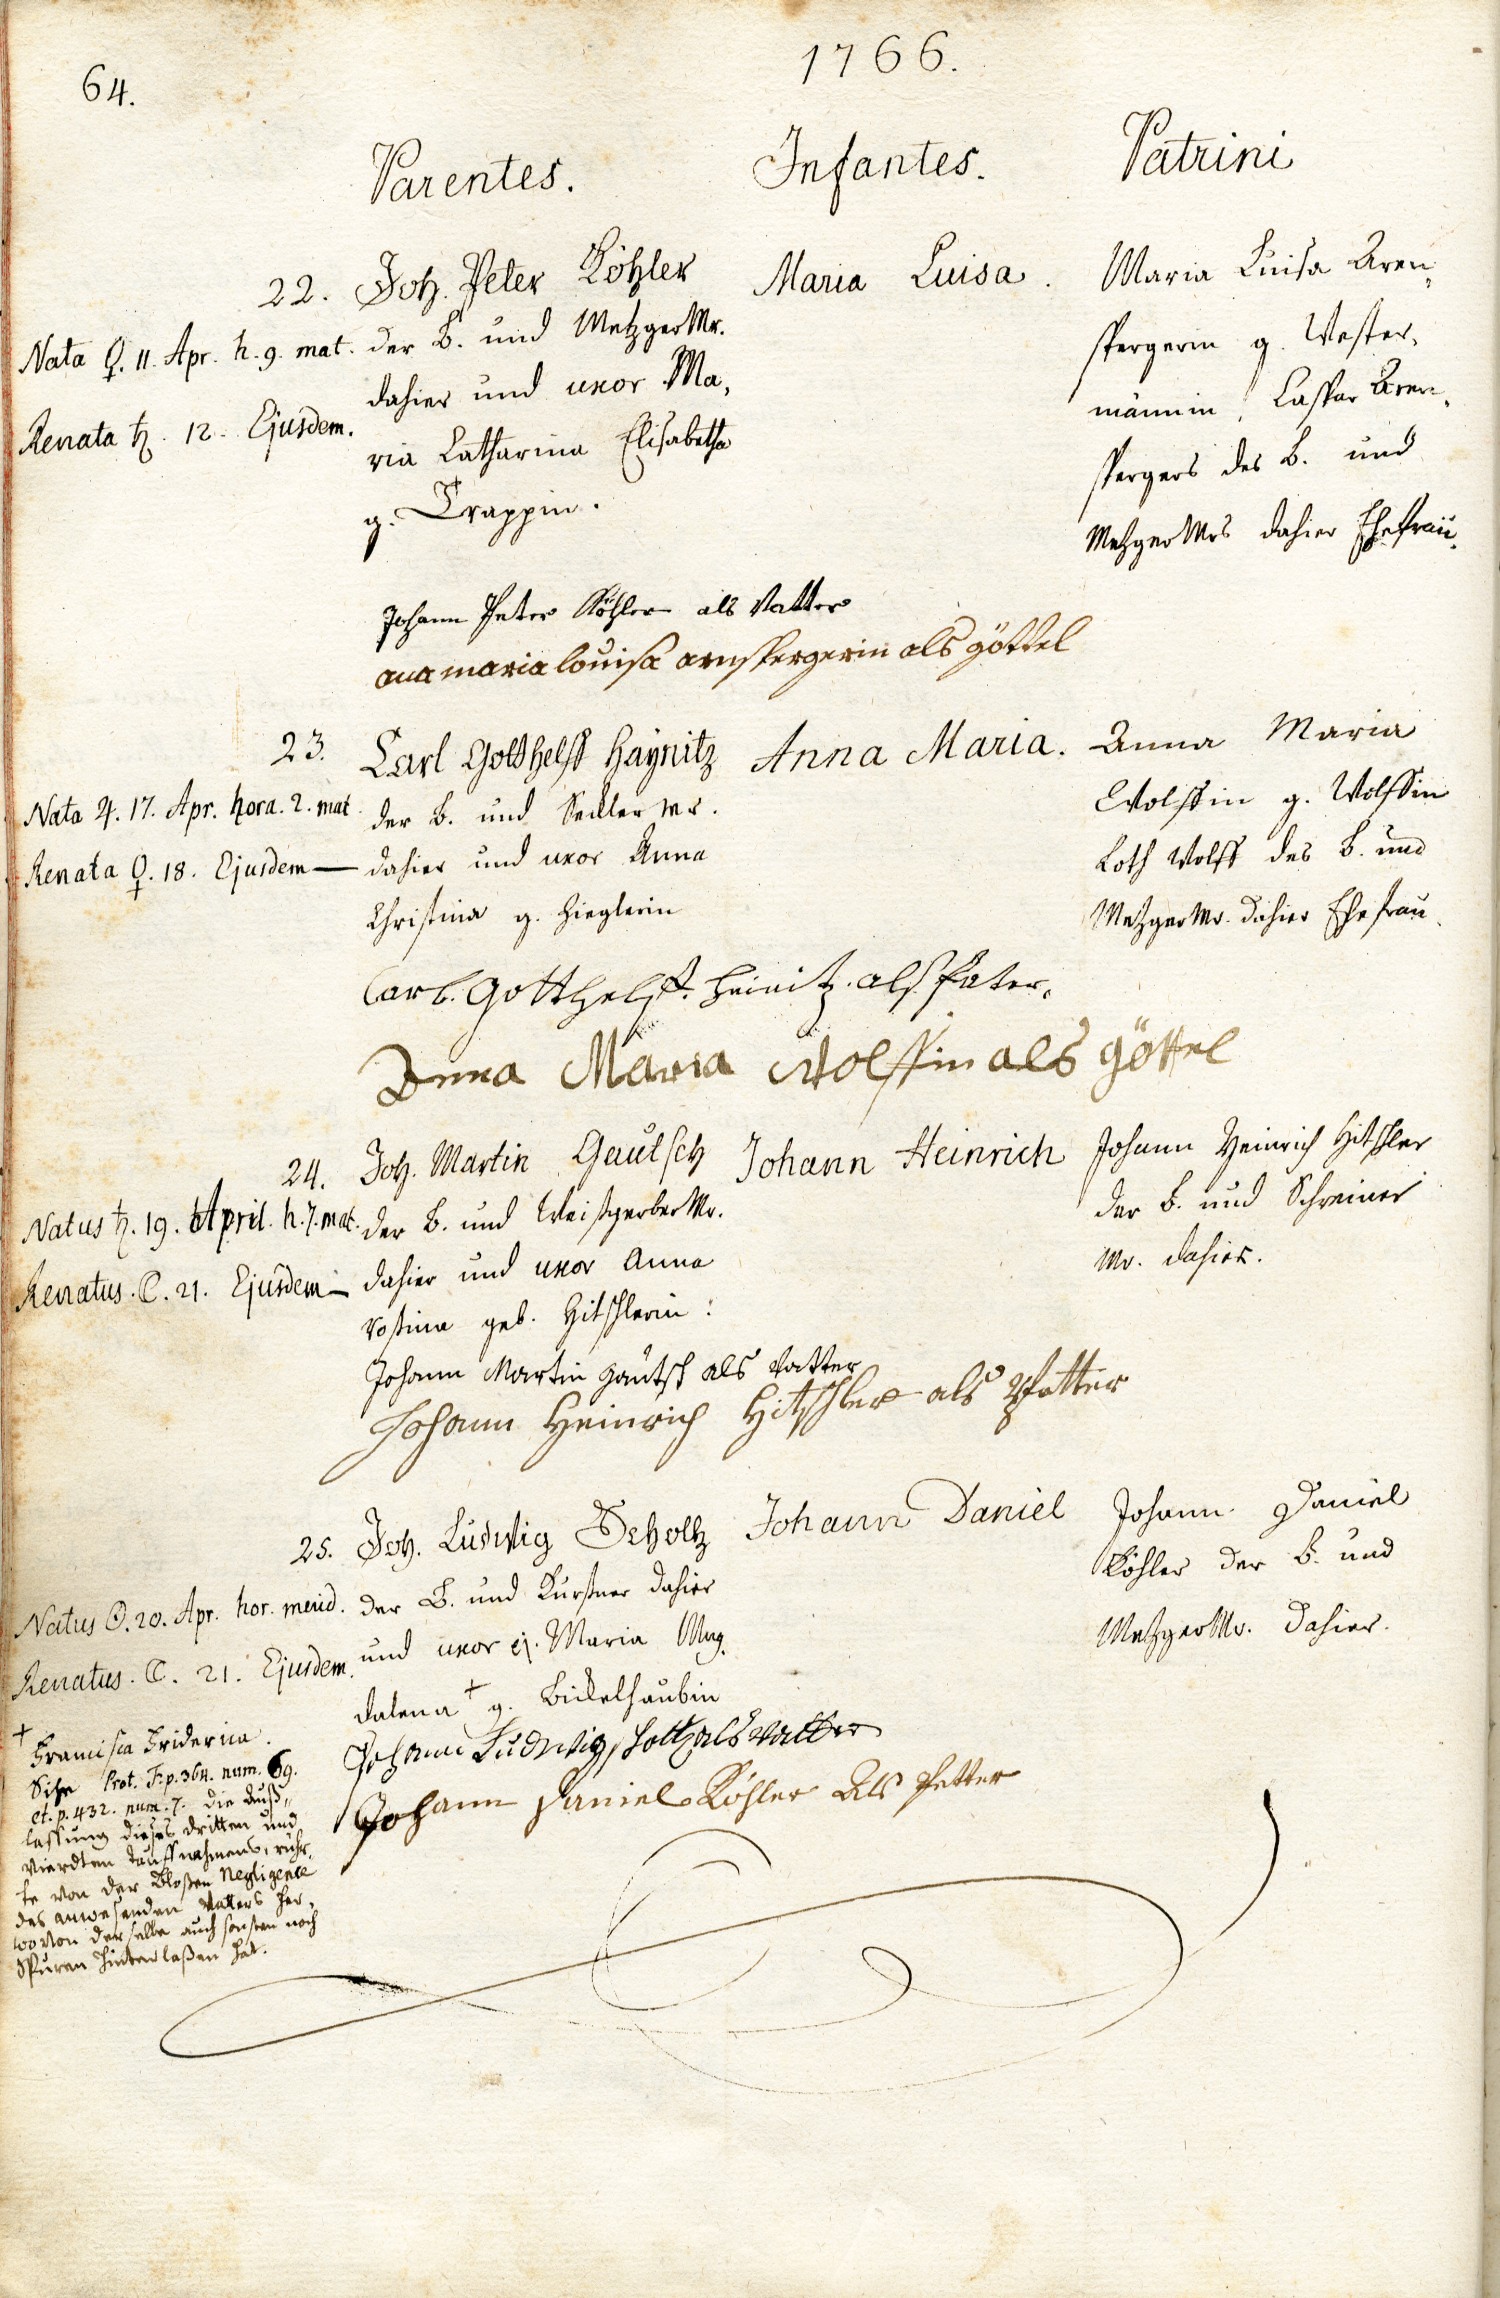 64.
1766.
Parentes. Infantes. Patrini
22. Joh. Peter Köhler
Nata ♀. 11. Apr. h. 9. mat. der B. und Metzger Mr.
dahier und uxor Ma,
Renata ♄. 12. Ejusdem.
ria Catharina Elisabetha
g. Trappin.
Maria Luisa.
Maria Luisa Aren,,
spergerin g. Wester,
männin, Caspar Aren,
spergers des B. und
Metzger Mrs dahier Ehefrau.
Johann Peter Köhler als Vatter
ana maria louisa arnspergerin als göttel
23. Carl Gotthelff Haÿnitz
Nata ♃. 17. Apr. hora. 2. mat. der B. und Sedler Mr.
Renata ♀. 18. Ejusdem — dahier und uxor Anna
Christina g. Zieglerin
Anna Maria.
Anna Maria
Wolffin g. Wolffin
Loth Wolff des B. und
Metzger Mr. dahier Ehefrau.
Carl. Gotthelff. Heinitz. als Fater.
Anna Maria Wolffin als göttel
24. Joh. Martin Gautsch
Natus ♄. 19. April. h. 7. mat. der B. und Weißgerber Mr.
Renatus. ☾. 21. Ejusdem — dahier und uxor Anna
Rosina geb. Hitschlerin:
Johann Heinrich
Johann Heinrich Hitschler
der B. und Schreiner
Mr. dahier.
Johann Martin gautsch als Vatter
Johann Heinrich Hitschler als Pfetter
25. Joh. Ludwig Scholtz
Natus ☉. 20. Apr. hor. merid. der B. und Kürsner dahier
Renatus. ☾. 21. Ejusdem. und uxor ej. Maria Mag,
dalena † g. Bickelhaubin
Johann Daniel
Johann Daniel
Köhler der B. und
Metzger Mr. dahier.
Johann Ludwig Scholtz als Vatter
Johann Daniel Köhler Als Petter
† Francisca Friderica.
Sihe Prot. F. p. 364. num. 69.
et. p. 432. num. 7. die Auß,,
lassung dieses dritten und
vierdten Tauffnahmens, rühr,
te von der Bloßen Negligence
des anwesenden Vatters her,
wovon derselbe auch sonsten noch
Spuren hinterlaßen hat.